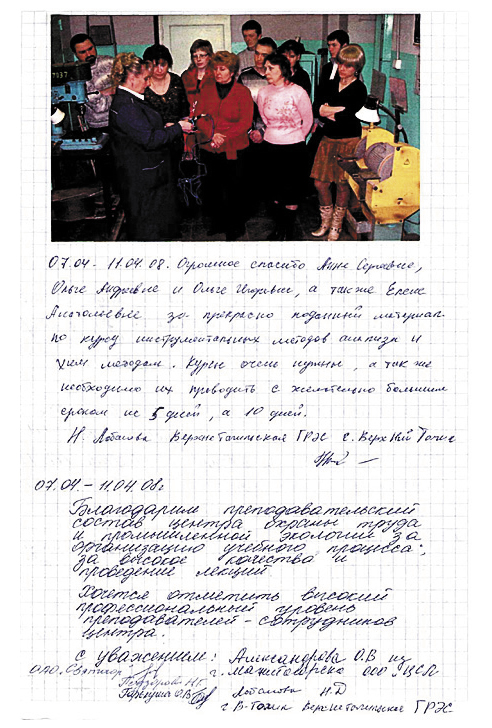 7037
07.04 - 11.04.08. Огромное спасибо Анне Сергеевне,
Ольге Андреевне и Ольге Игоревне, а также Елене
Анатольевне за прекрасно поданный материал
по курсу инструментальных методов анализа и
хим методам. Курсы очень нужны, а так же
необходимо их проводить с желательно большим
сроком не 5 дней, а 10 дней.
Н. Лобанова Верхнетагильская ГРЭС г. Верхний Тагил
07.04 - 11.04.08г
Благодарим преподавательский
состав центра охраны труда
и промышленной экологии за
организацию учебного процесса,
за высокое качества и
проведение лекций
Хочется отметить высокий
профессиональный уровень
преподавателей - сотрудников
центра.
С уважением: Александрова О.В из
ОАО г. Магнитогорска ООО "ЦСЛ
Н.Д
г В-Тагил Верхнетагильская ГРЭС